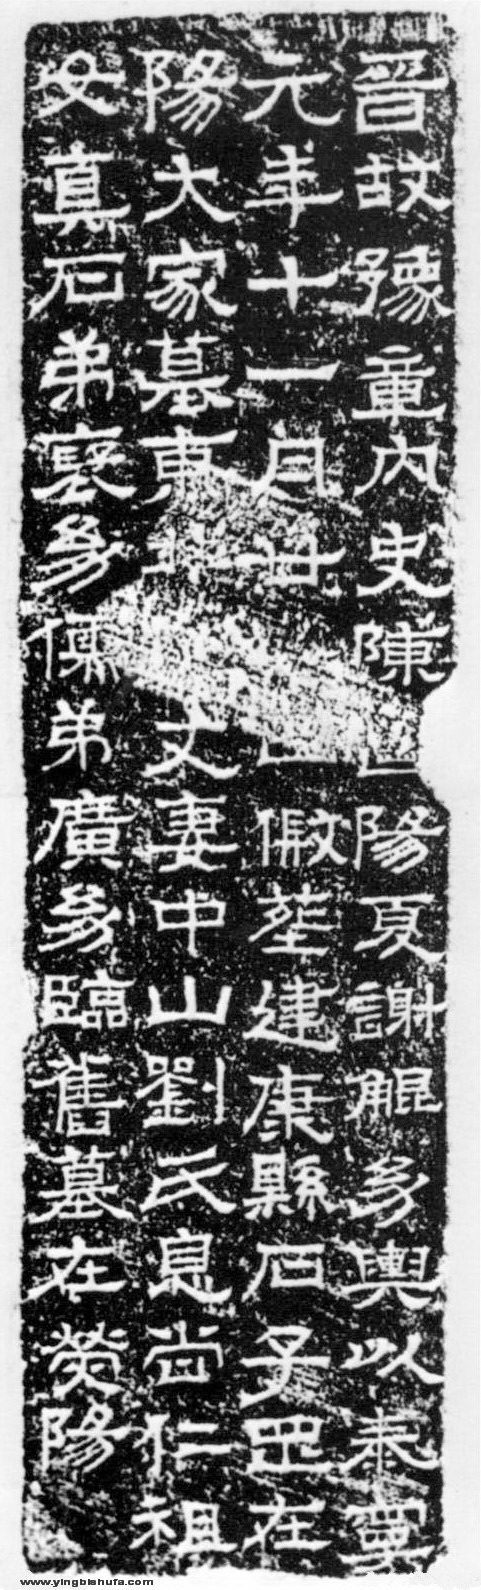 晉故豫章內史陳　陽夏謝鯤幼輿以泰寧
元年十一月廿　　假塟建康縣石子罡在
陽大家墓東北　丈妻中山劉氏息尚仁祖
女真石弟裒幼儒弟廣幼臨舊墓在熒陽
www.yingbishufa.com